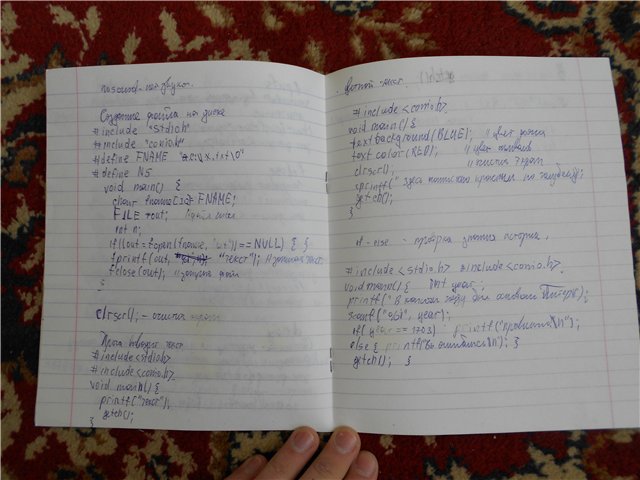 nosound - нет звука.
Создание файла на диске
#include "stdio.h"
#include "conio.h"
#define FNAME
#define N5
void main() {
char fname[20] = FNAME;
FILE *out;
int n;
if((out=fopen(fname, "wt"))==NULL) { }
fprintf(out, "текст");
fclose(out);
}
clrscr(); - очистка экрана
текст
#include <stdio.h>
#include <conio.h>
void main() {
printf("текст");
getch();
}
Цветной текст. getch()
#include <conio.h>
void main() {
textbackground(BLUE); // цвет фона
textcolor(RED); // цвет
clrscr(); // очистка экрана
cprintf("Здесь написано красным по голубому");
getch();
}
if - else - проверка знания истории.
#include <stdio.h> #include <conio.h>
void main() { int year;
printf("В каком году был основан Питер?");
scanf("%d", year);
if (year == 1703) printf("правильно\n");
else { printf("Вы ошиблись\n"); }
getch(); }